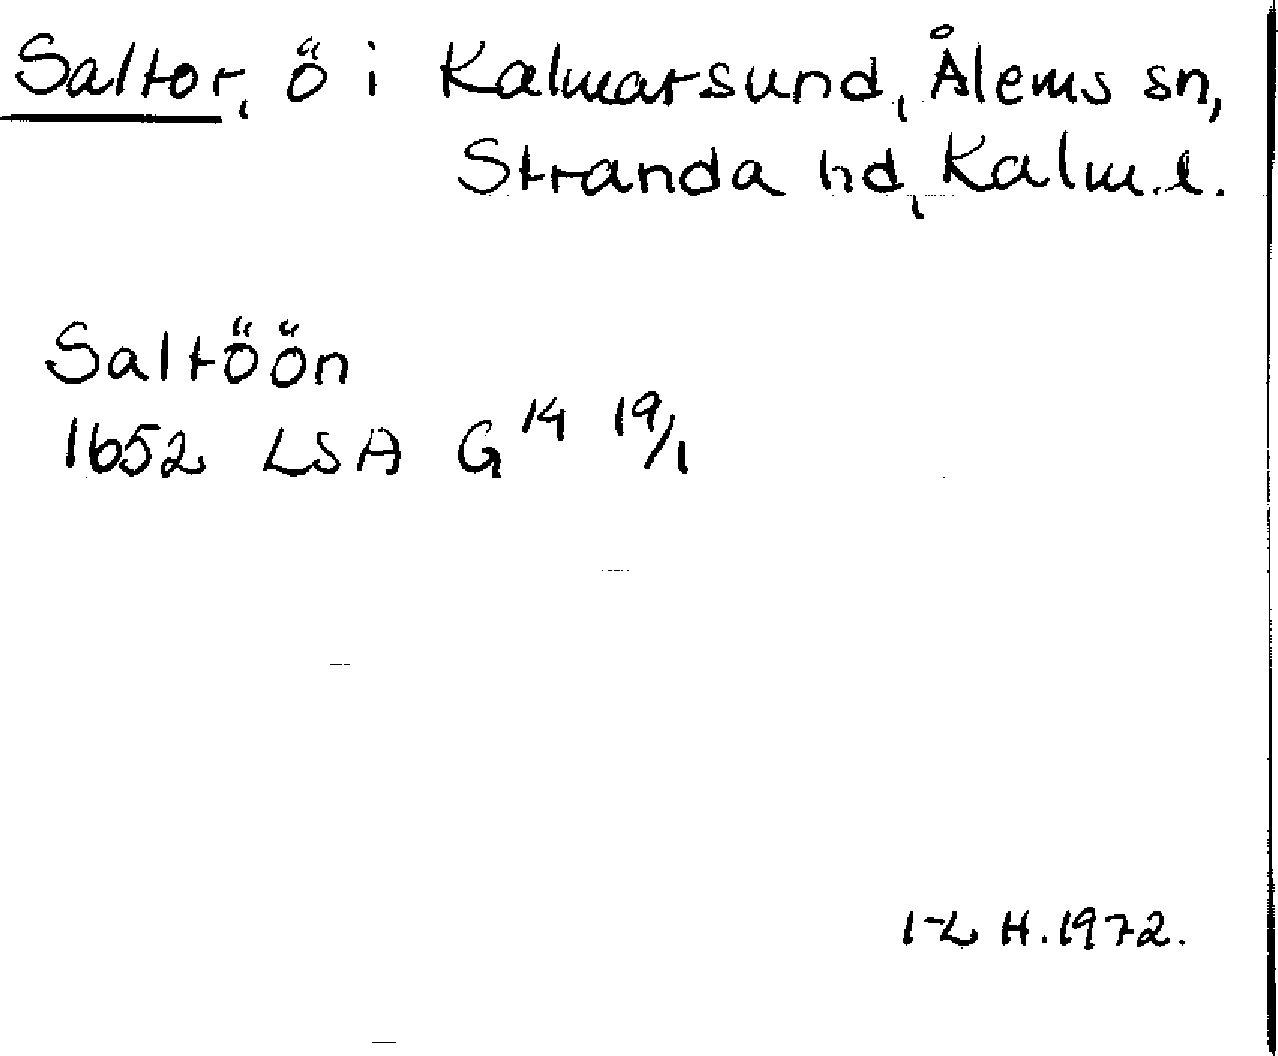 Saltor, ö i Kalmarsund, Ålems sn,
Stranda hd, Kalm. l.
Saltöön
1652 LSA G 14 19/1
I-L H. 1972.